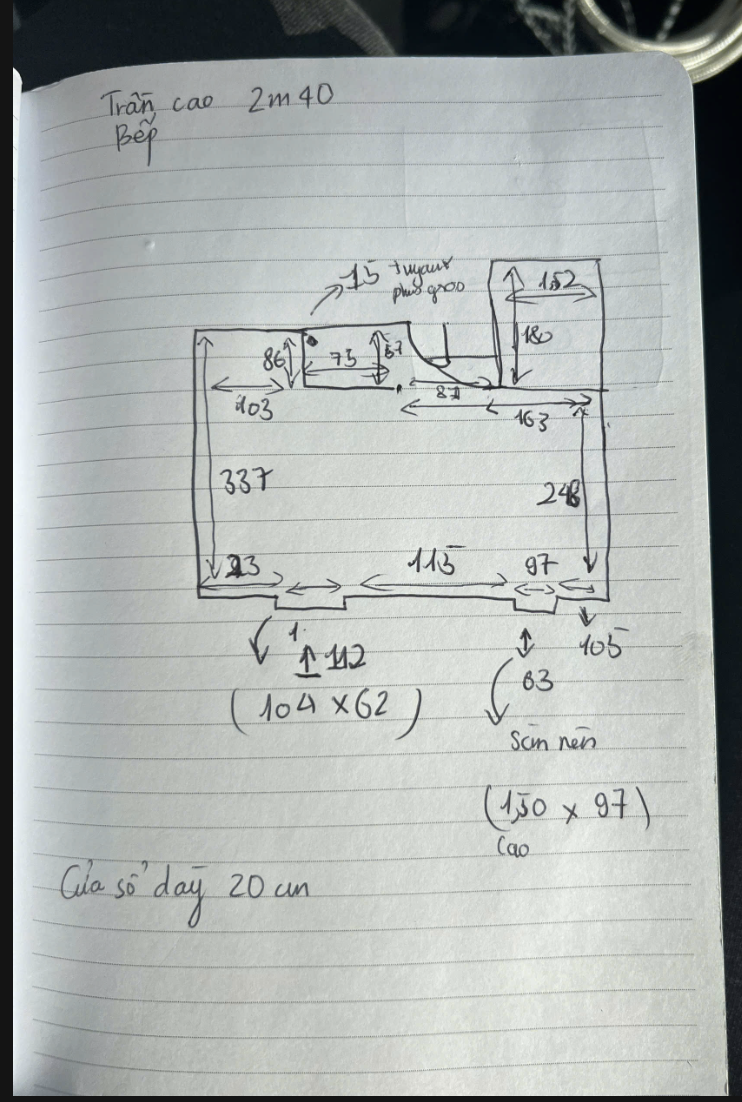 Trần cao 2m40
Bếp
15 tuyaux
plus gros
1,52
180
86
75
103
87
163
337
248
115
97
112
105
(104 x 62)
63
Sàn nền
(1,50 x 97)
Cao
Cửa sổ dày 20 cm